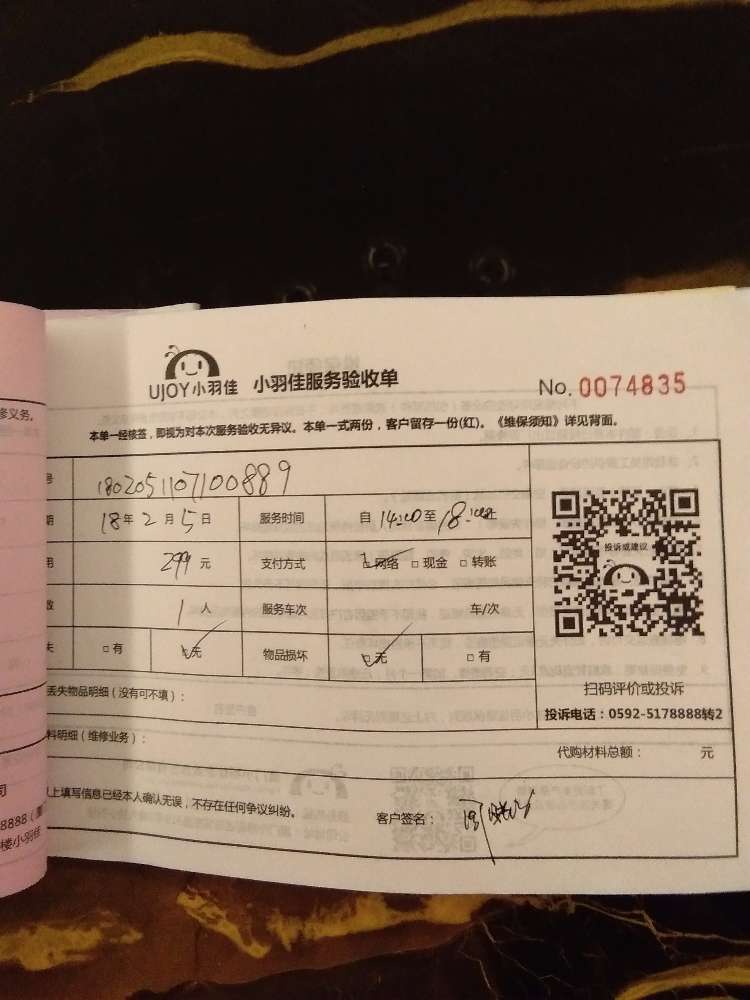 修义务。
UJOY小羽佳 小羽佳服务验收单 No. 0074835
本单一经核签，即视为对本次服务验收无异议。本单一式两份，客户留存一份(红)。《维保须知》详见背面。
号 1802051107100889
期 18年2月5日 服务时间 自14:00至18:00止
用 299元 支付方式 网络 现金 转账
数 1人 服务车次 车/次
失 有 无 物品损坏 无 有
投诉或建议
扫码评价或投诉
投诉电话：0592-5178888转2
丢失物品明细（没有可不填）：
料明细（维修业务）：
代购材料总额： 元
上填写信息已经本人确认无误，不存在任何争议纠纷。
客户签名：
司
8888（厦门
楼小羽佳